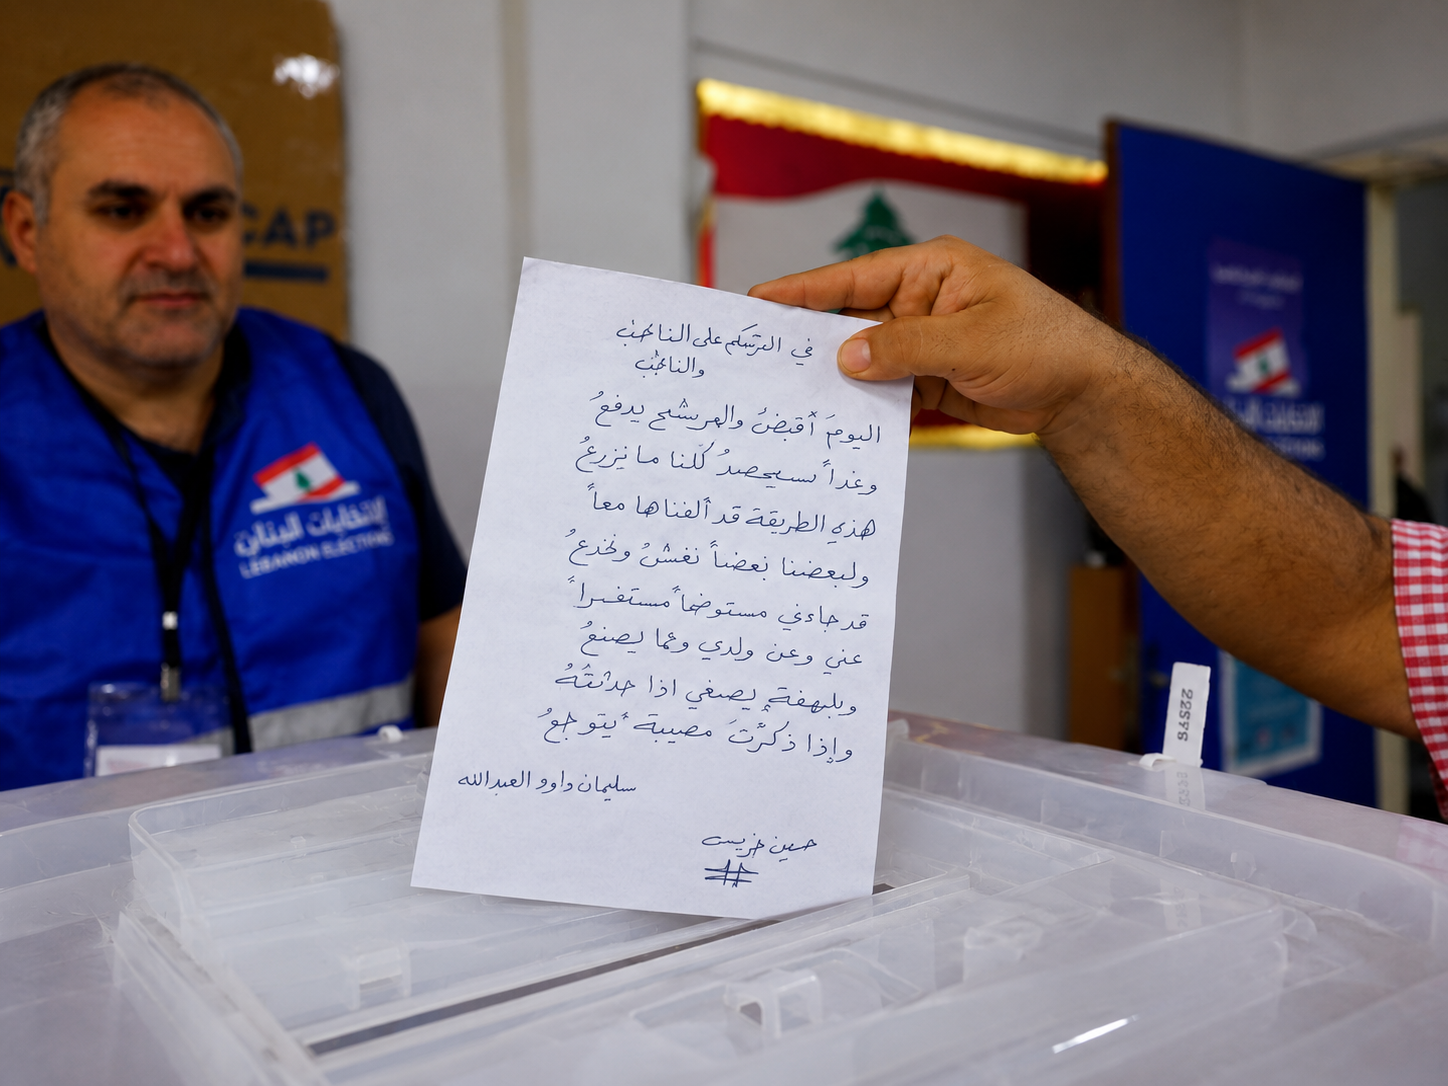 في الترسكم على الناخب
والناخب
اليومَ أقبضُ والمرشح يدفعُ
وغداً سيحصدُ كلّنا ما نزرعُ
هذهِ الطريقة قد ألفناها معاً
ولبعضنا بعضاً نغشُ ونخدعُ
قد جاءني مستوضحاً مستفسراً
عني وعن ولدي وعما يصنعُ
وبلهفةٍ يصغي اذا حدثتُهُ
وإذا ذكرَّتَ مصيبة ً يتوجعُ
سليمان داود العبدالله
حسين خريس
CAP
الانتخابات البنان
LEBANON ELECTIONS
22SYS